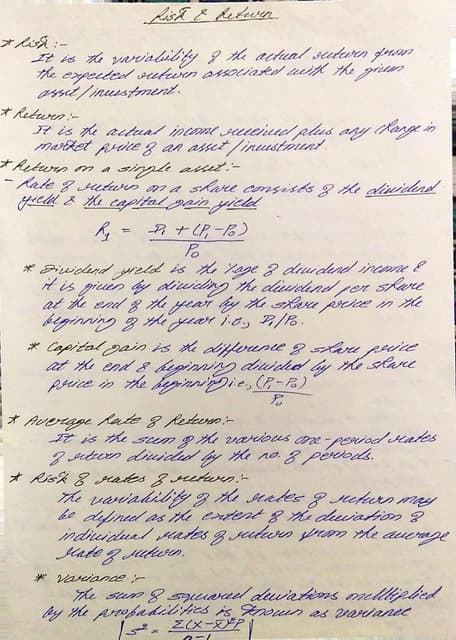 Risk & Return
* Risk :-
It is the variability of the actual return from
the expected return associated with the given
asset / investment.
* Return :-
It is the actual income received plus any change in
market price of an asset / investment.
* Return on a single asset :-
- Rate of return on a share consists of the dividend
yield & the capital gain yield
R₁ = D₁ + (P₁ - P₀)
P₀
* Dividend yield is the %age of dividend income &
it is given by dividing the dividend per share
at the end of the year by the share price in the
beginning of the year i.e, D₁/P₀.
* Capital gain is the difference of share price
at the end & beginning divided by the share
price in the beginning i.e, (P₁ - P₀)
P₀
* Average Rate of Return :-
It is the sum of the various one-period rates
of return divided by the no. of periods.
* Risk of rates of return :-
The variability of the rates of return may
be defined as the extent of the deviation of
individual rates of return from the average
rate of return.
* Variance :-
The sum of squared deviations multiplied
by the probabilities is known as variance
s² = Σ(X-X̄)²P
n-1